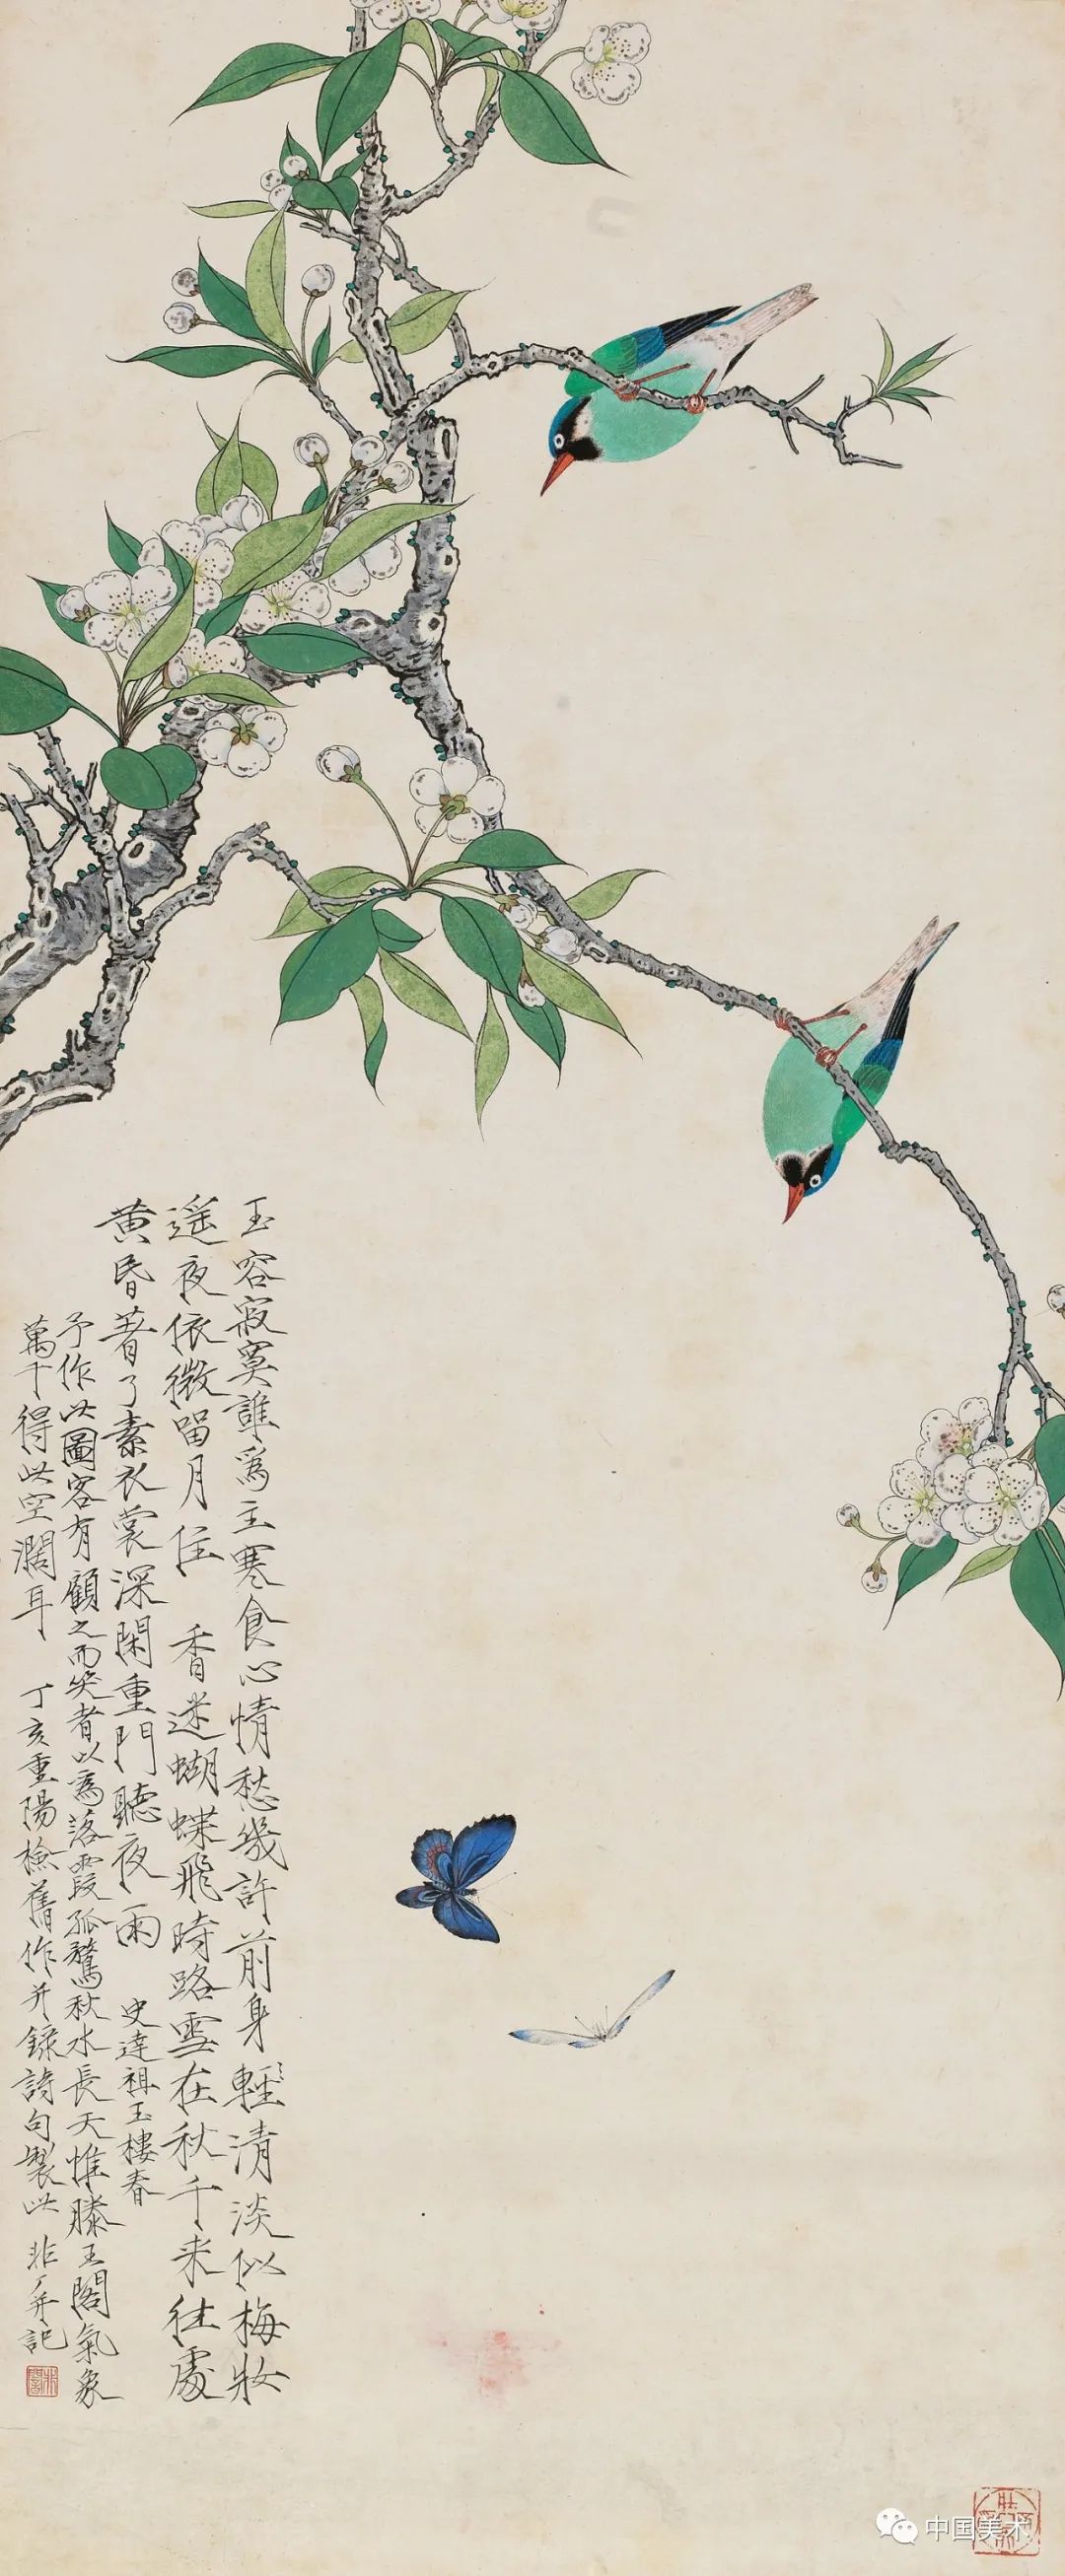 玉容寂寞誰爲主寒食心情愁幾許前身輕清淡似梅妝
遥夜依微留月住 香迷蝴蝶飛時路雪在秋千来往處
黄昏著了素衣裳深閉重門聽夜雨 史達祖玉樓春
予作此圖客有顧之而笑者以爲落霞孤鶩秋水長天惟滕王閣氣象
萬千得此空濶耳 丁亥重陽檢舊作并録詩句製此 非厂并記
中国美术